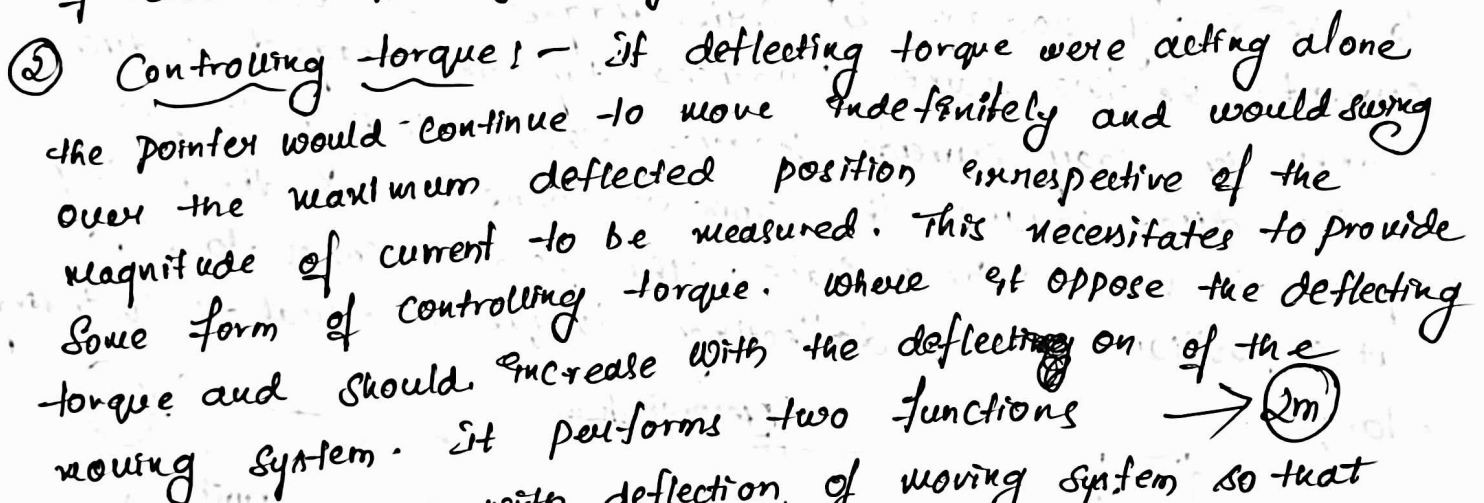 ② Controlling torque :- if deflecting torque were acting alone
the pointer would continue to move indefinitely and would swing
over the maximum deflected position irrespective of the
magnitude of current to be measured. This necessitates to provide
Some form of controlling torque. where it oppose the deflecting
torque and should increase with the deflection of the
moving system. it performs two functions → 2m
with deflection of moving system so that